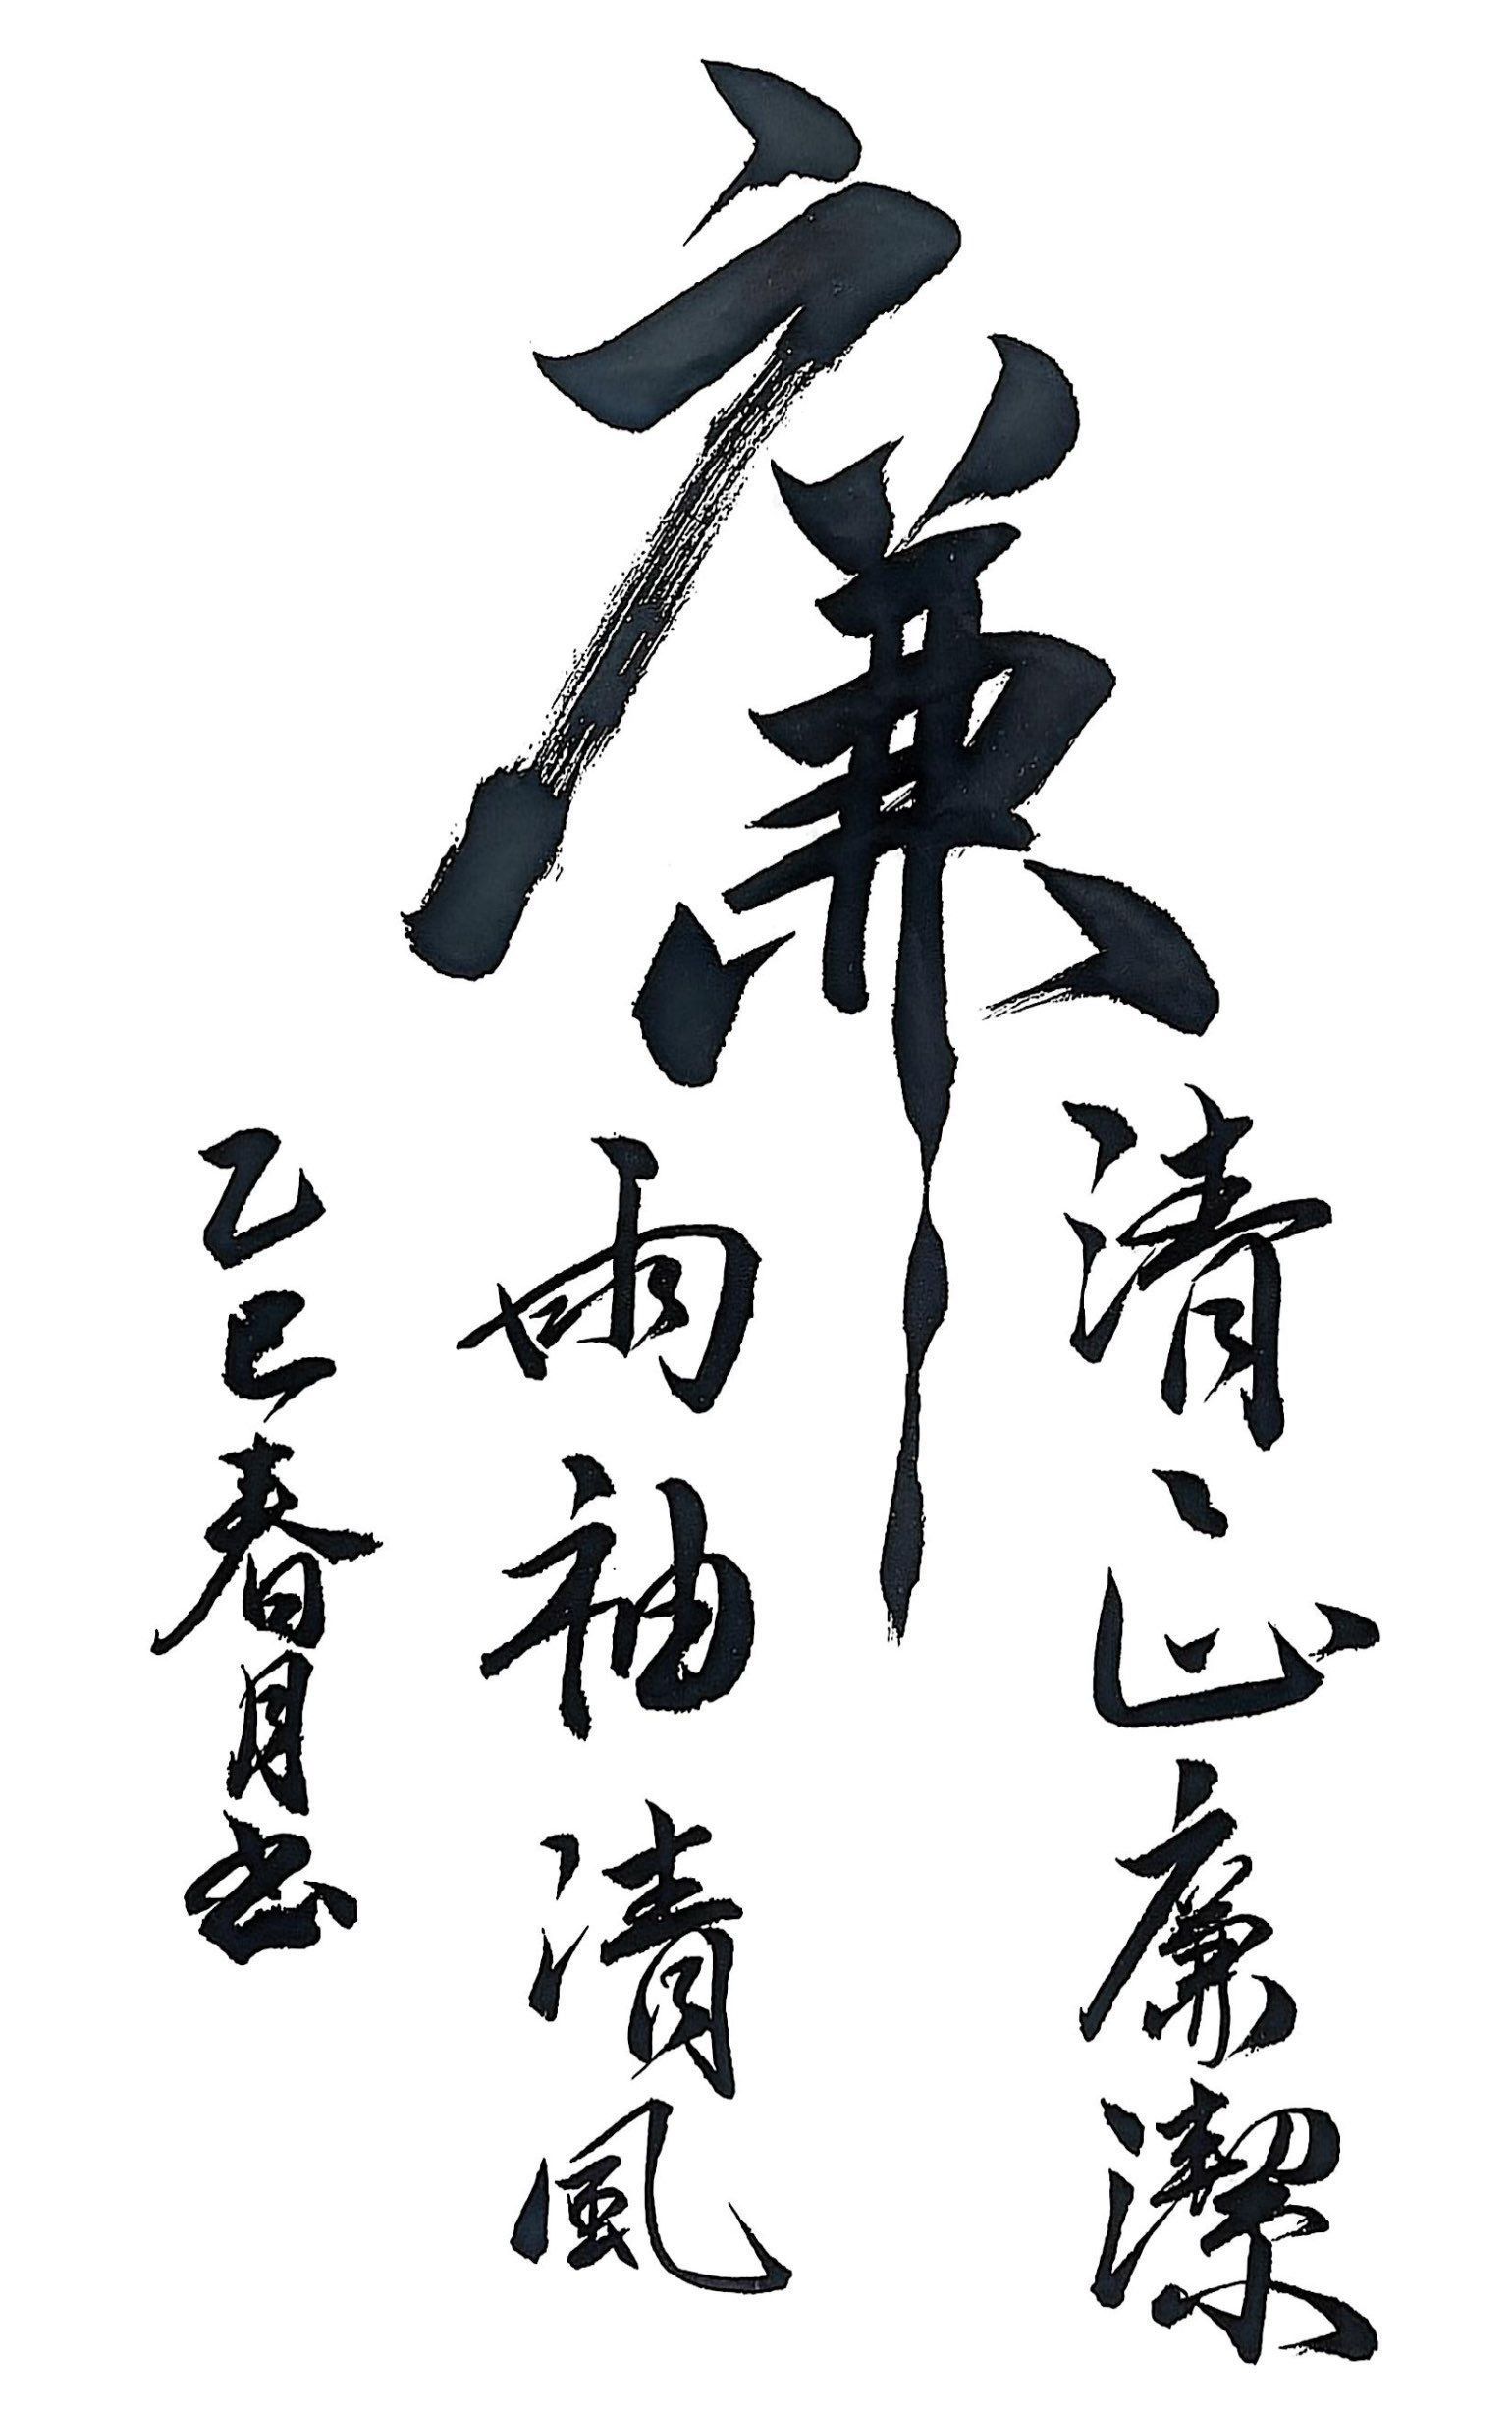 廉
清正廉潔
兩袖清風
乙巳春月书